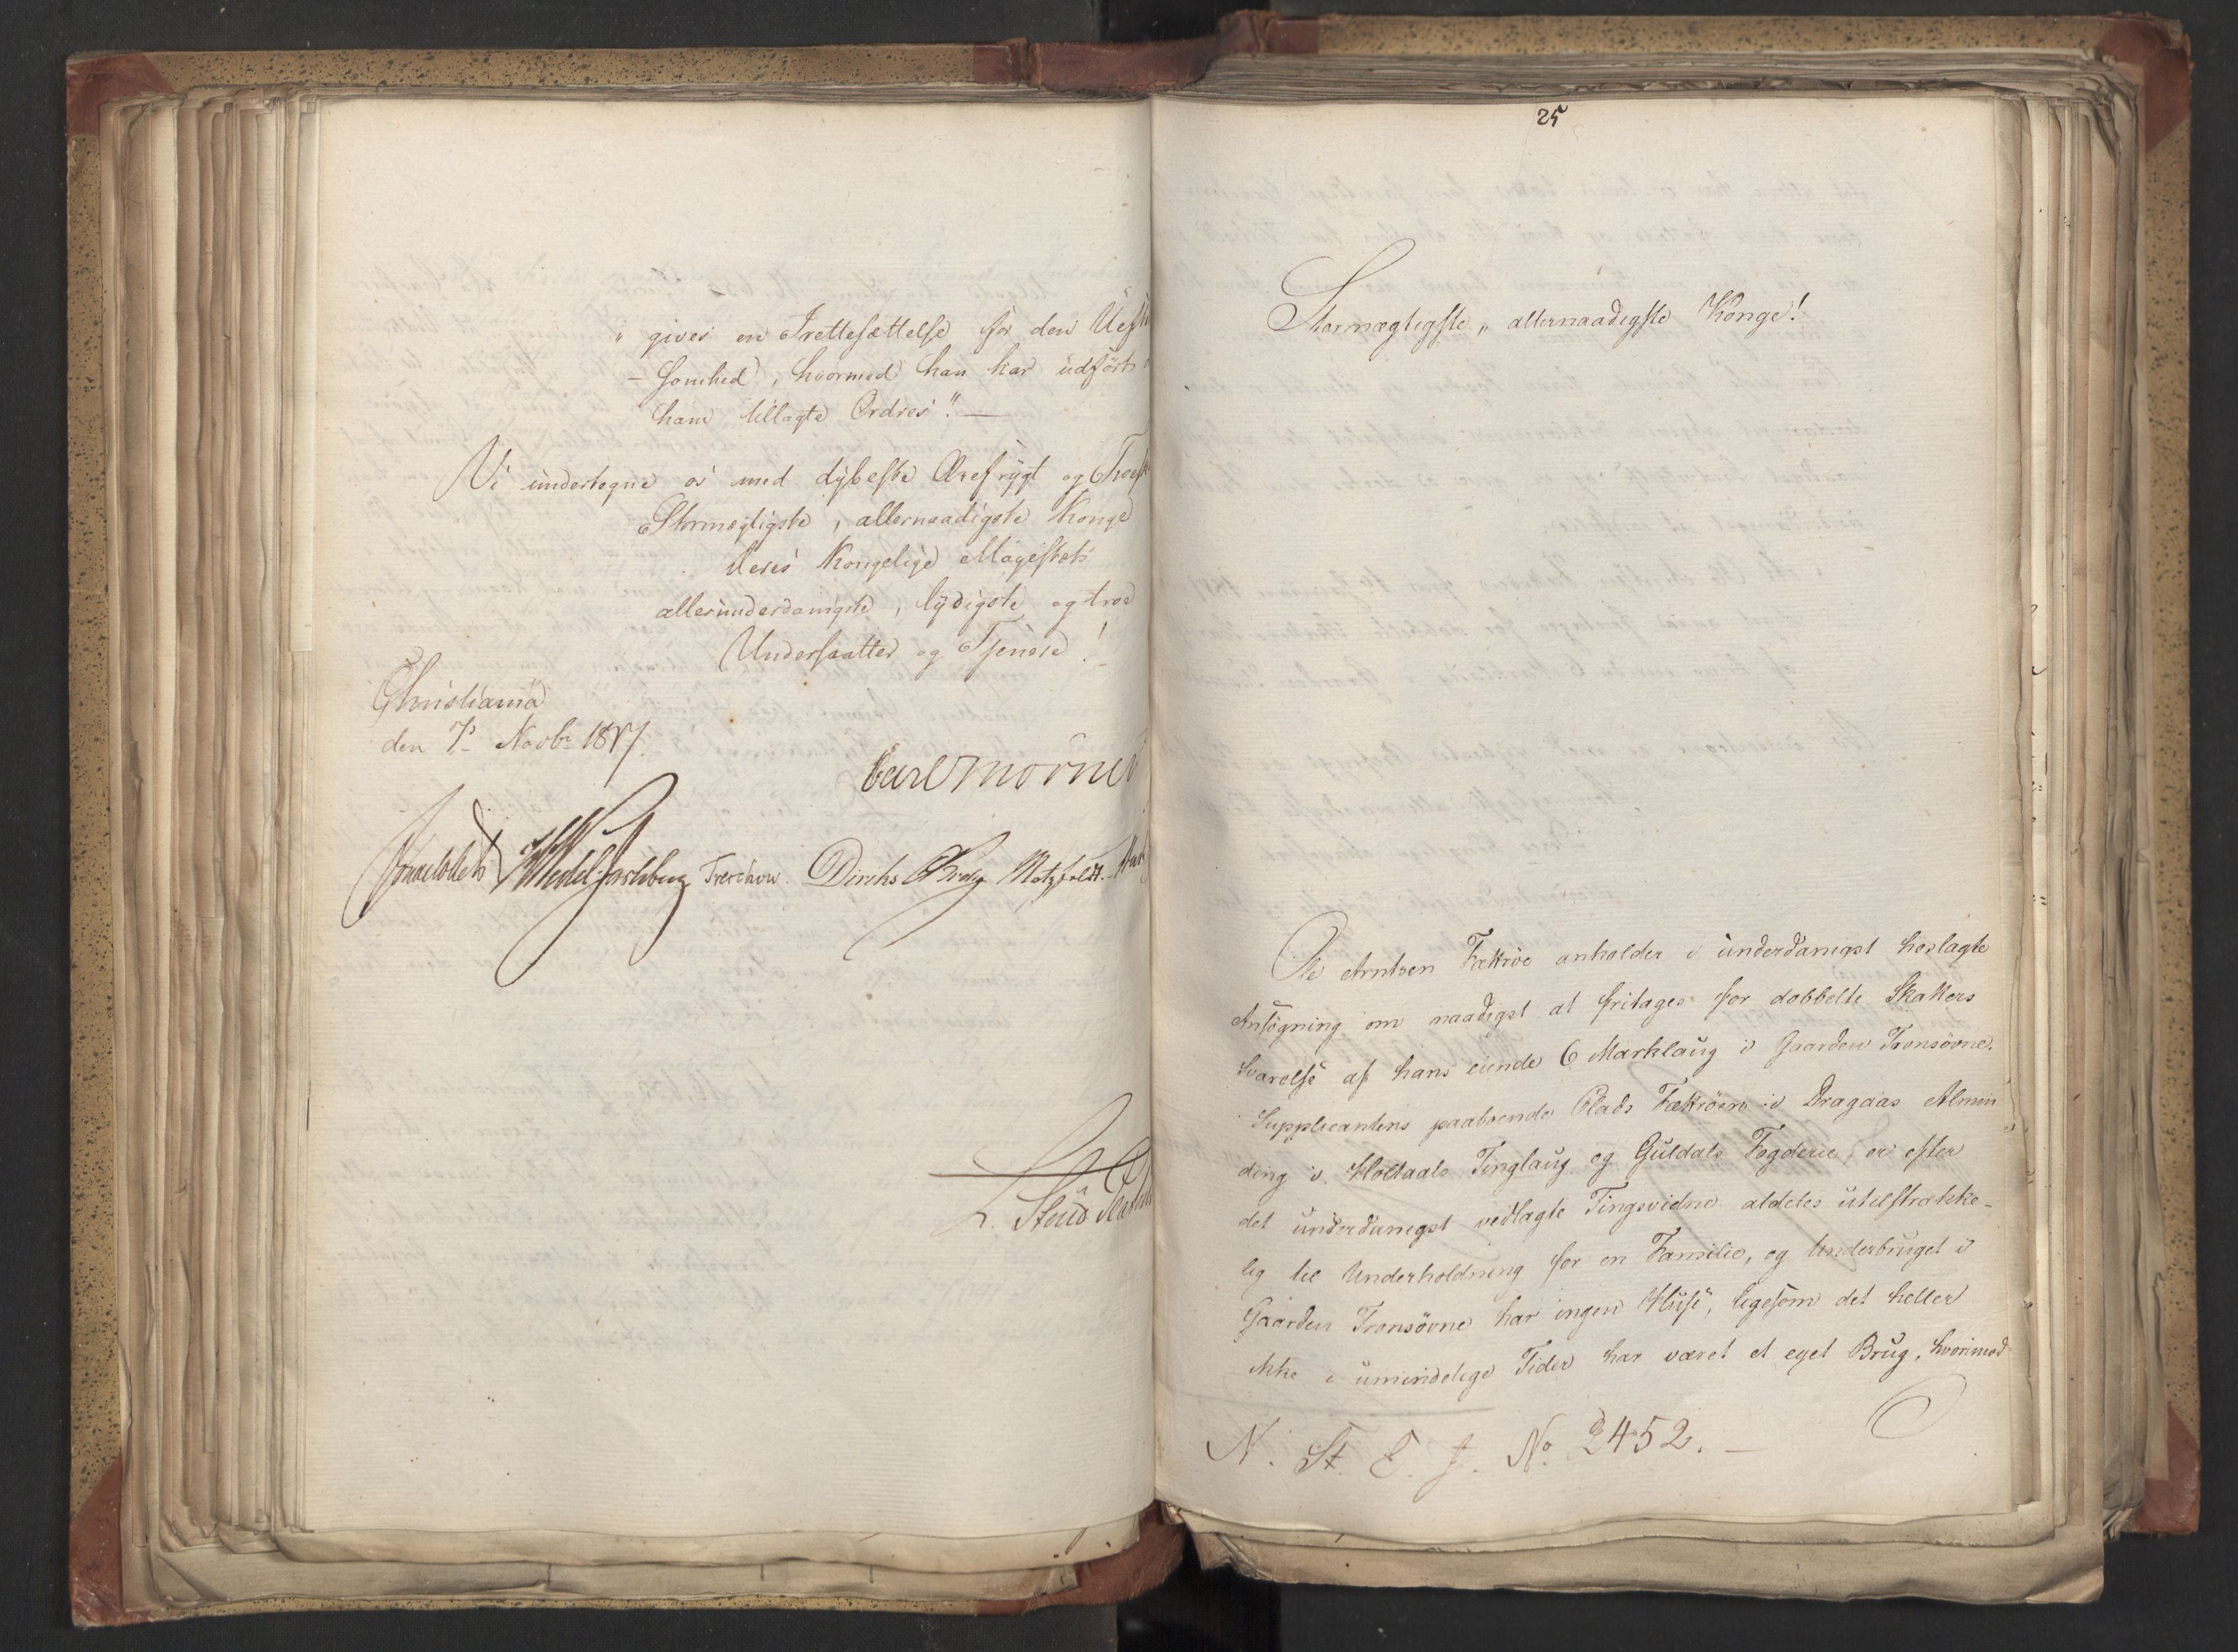 " gives en Irettesættelse for den
- somhed, hvormed han har udført
ham tillagte Ordres". —
Vi undertegne os med dybeste Ærefrygt og Troesk
Stormægtigste, allernaadigste Konge
Deres Kongelige Majestets
allerunderdanigste, lydigste og troe
Undersaatter og Tjenere!
Christiania
den 7de Novbr 1817.
Carl Mörner
Sommerhielm Wedel-Jarlsberg Treschow. Diriks Krog Motzfeldt.
L. Stoud Platou
25
Stormægtigste, allernaadigste Konge!
Ole Arntsen Fættröe anholder i underdanigst hoslagte
Ansögning om naadigst at fritages for dobbelte Skatters
Svarelse af hans eiende 6 Marklaug i Gaarden Tronsövne.
Supplicantens paaboende Plads Fættröen i Dragaas Almin
ding i Holtaals Tinglaug og Guldals Fogderie, er efter
det underdanigst vedlagte Tingsvidne aldeles utilstrække-
lig til Underholdning for en Familie, og Underbruget i
Gaarden Tronsövne har ingen Huse, ligesom det heller
ikke i umindelige Tider har været et eget Brug, hvorimod
N. St. E. J. No 2452. —